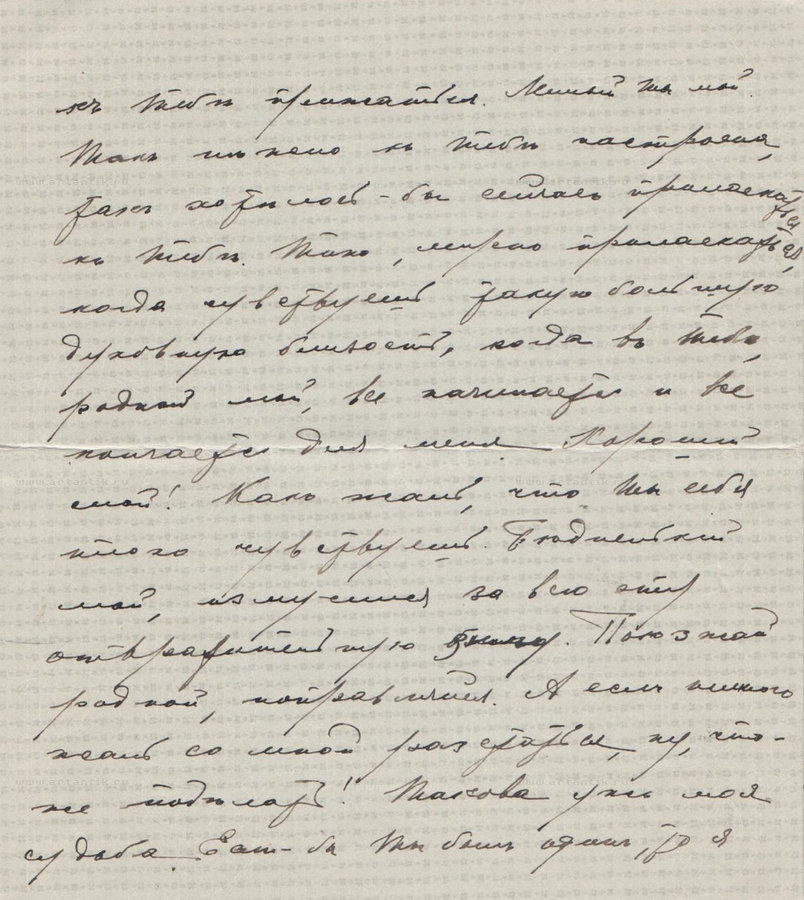 къ тебѣ прижаться. Милый ты мой.
Такъ нѣжно къ тебѣ настроена,
такъ хотѣлось-бы сейчасъ приласкаться
къ тебѣ. Тихо, мирно приласкаться,
когда чувствуешь такую большую
духовную близость, когда въ тебѣ,
родной мой, все начинается и все
кончается для меня. Хороший
мой! Какъ жаль, что ты себя
плохо чувствуешь. Бѣдненький
мой, измучился за всю эту
отвратительную зиму. Поѣзжай
родной, поправляйся. А если немного
жаль со мной разстаться, ну, что-
же подѣлать! Такова ужъ моя
судьба. Если-бы ты былъ одинъ, то я